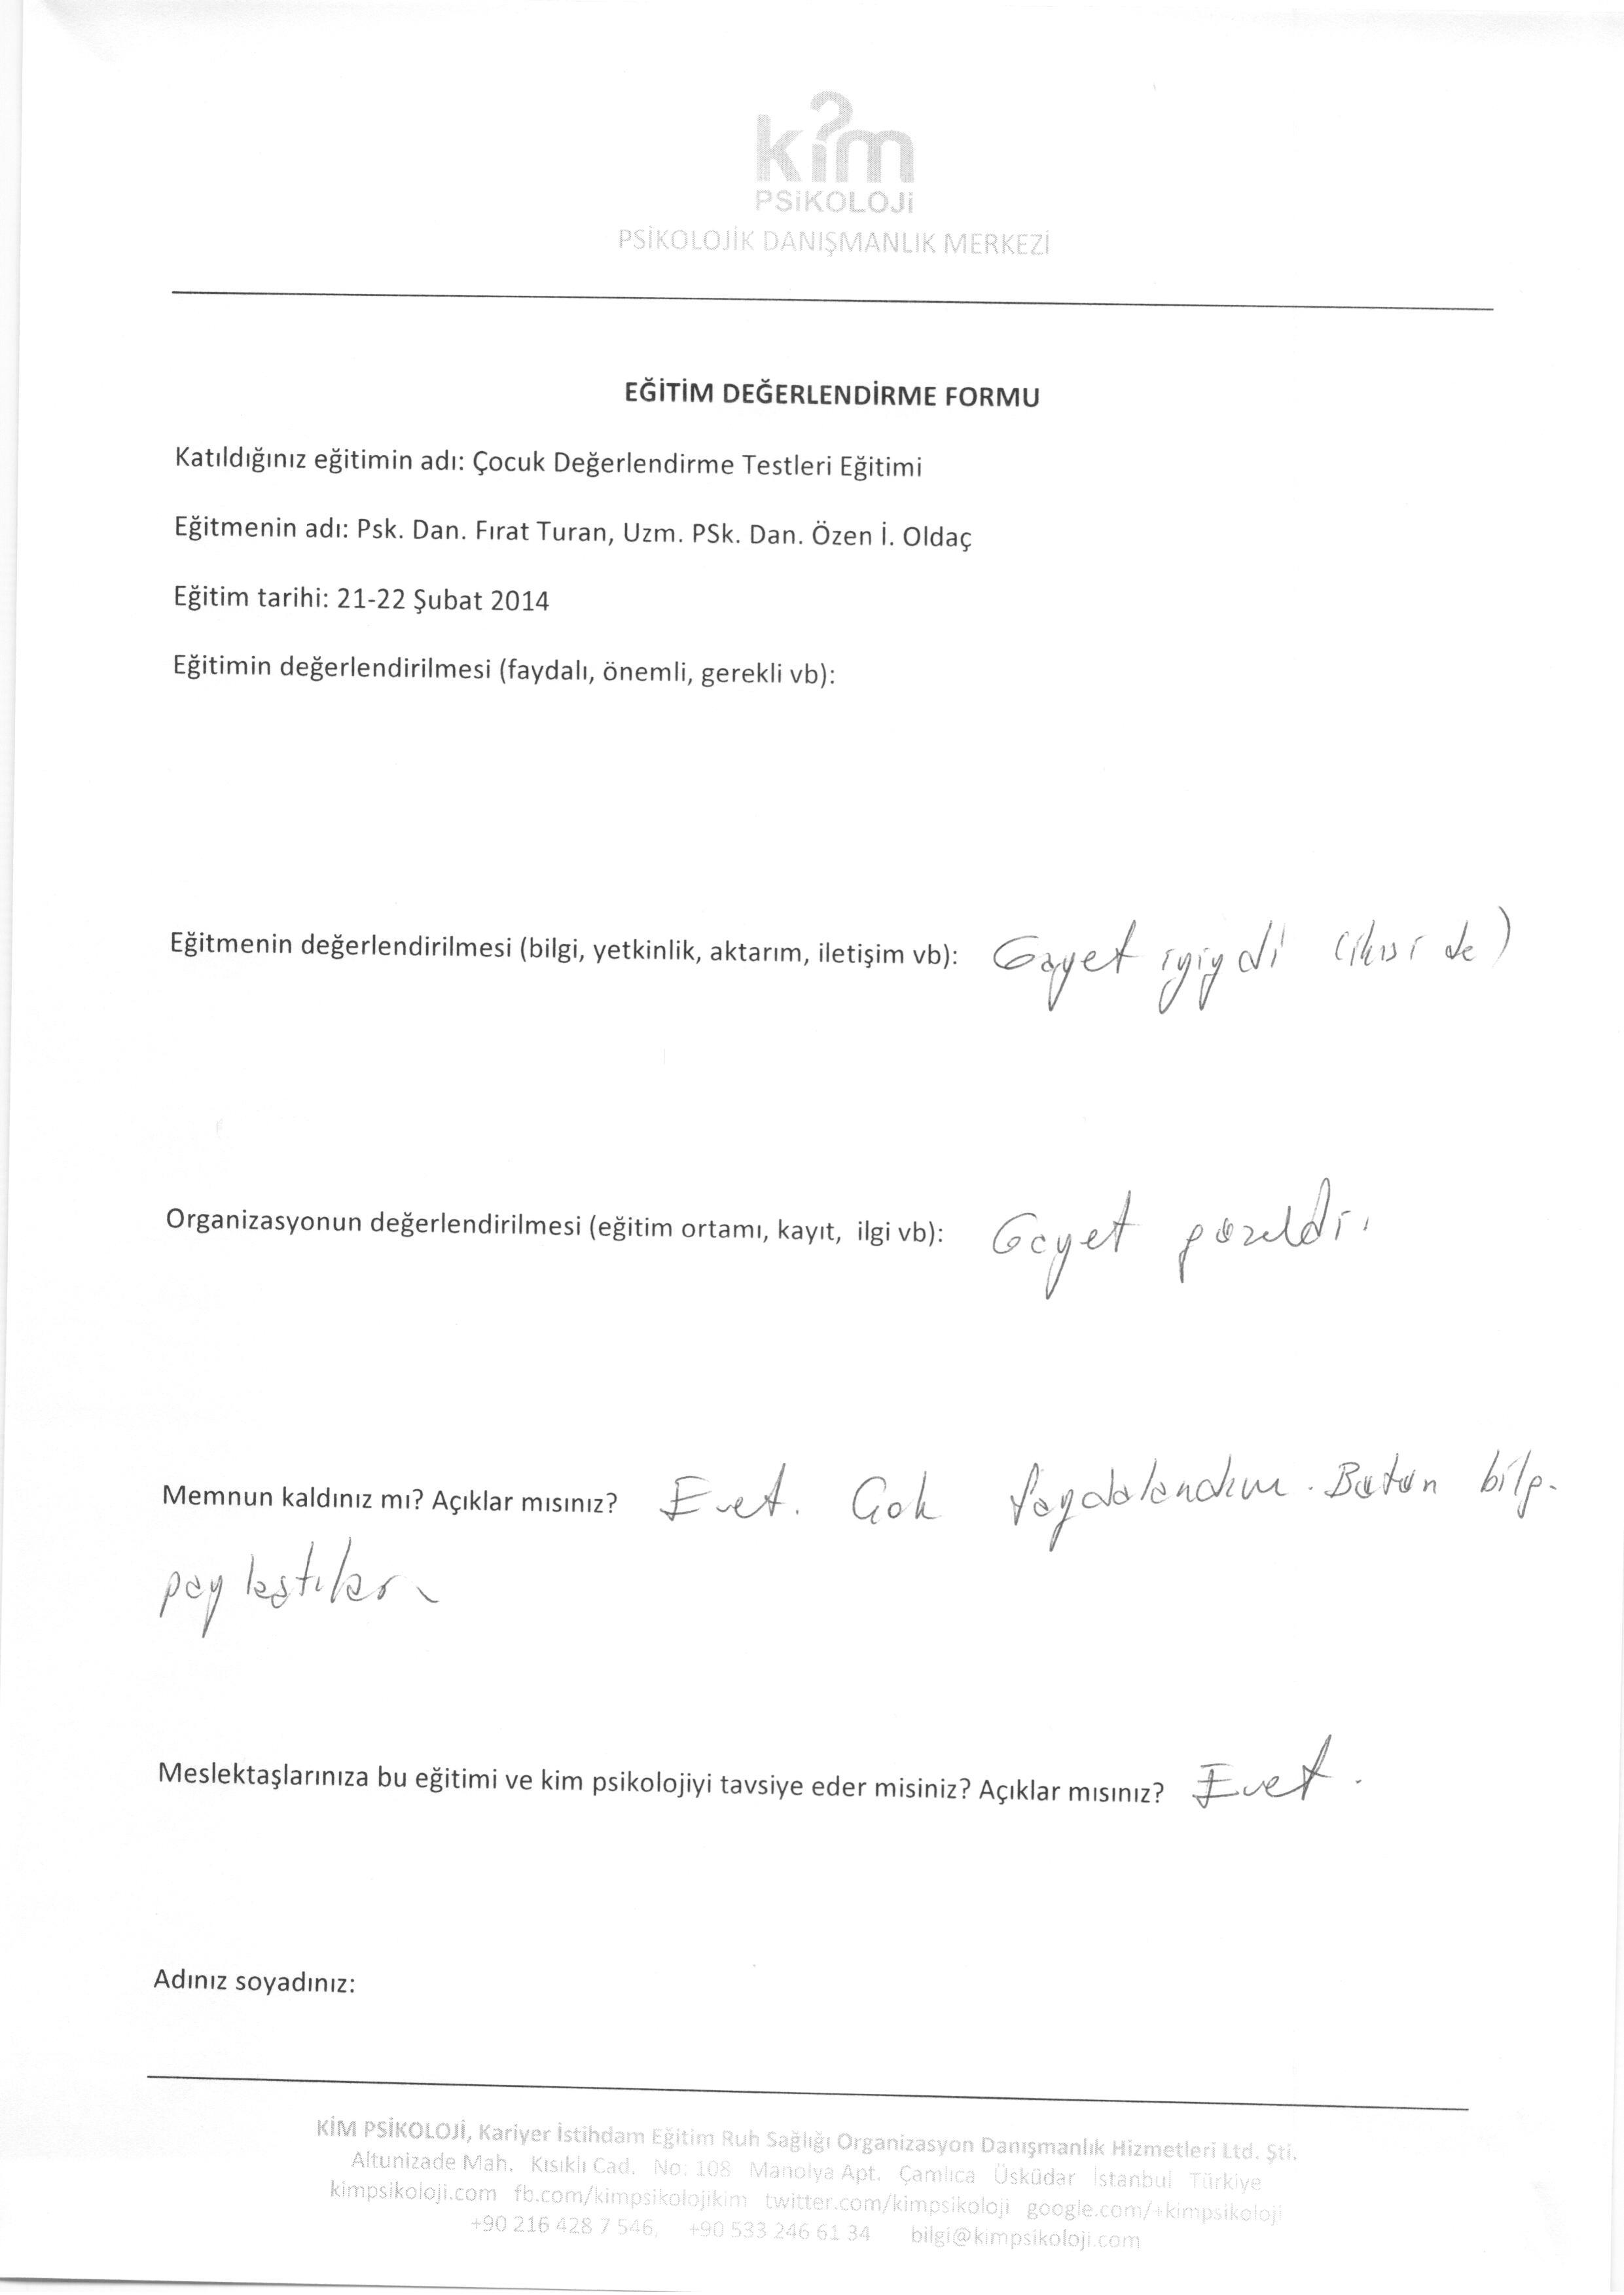 kim
PSiKOLOJi
PSİKOLOJİK DANIŞMANLIK MERKEZİ
EĞİTİM DEĞERLENDİRME FORMU
Katıldığınız eğitimin adı: Çocuk Değerlendirme Testleri Eğitimi
Eğitmenin adı: Psk. Dan. Fırat Turan, Uzm. PSk. Dan. Özen İ. Oldaç
Eğitim tarihi: 21-22 Şubat 2014
Eğitimin değerlendirilmesi (faydalı, önemli, gerekli vb):
Eğitmenin değerlendirilmesi (bilgi, yetkinlik, aktarım, iletişim vb): Gayet iyiydi (ikisi de)
Organizasyonun değerlendirilmesi (eğitim ortamı, kayıt, ilgi vb): Gayet güzeldi.
Memnun kaldınız mı? Açıklar mısınız? Evet. Çok faydalandım. Bütün bilg.
paylaştılar
Meslektaşlarınıza bu eğitimi ve kim psikolojiyi tavsiye eder misiniz? Açıklar mısınız? Evet.
Adınız soyadınız:
KİM PSİKOLOJİ, Kariyer İstihdam Eğitim Ruh Sağlığı Organizasyon Danışmanlık Hizmetleri Ltd. Şti.
Altunizade Mah. Kısıklı Cad. No: 108 Manolya Apt. Çamlıca Üsküdar İstanbul Türkiye
kimpsikoloji.com fb.com/kimpsikolojikim twitter.com/kimpsikoloji google.com/+kimpsikoloji
+90 216 428 7 546, +90 533 246 61 34 bilgi@kimpsikoloji.com